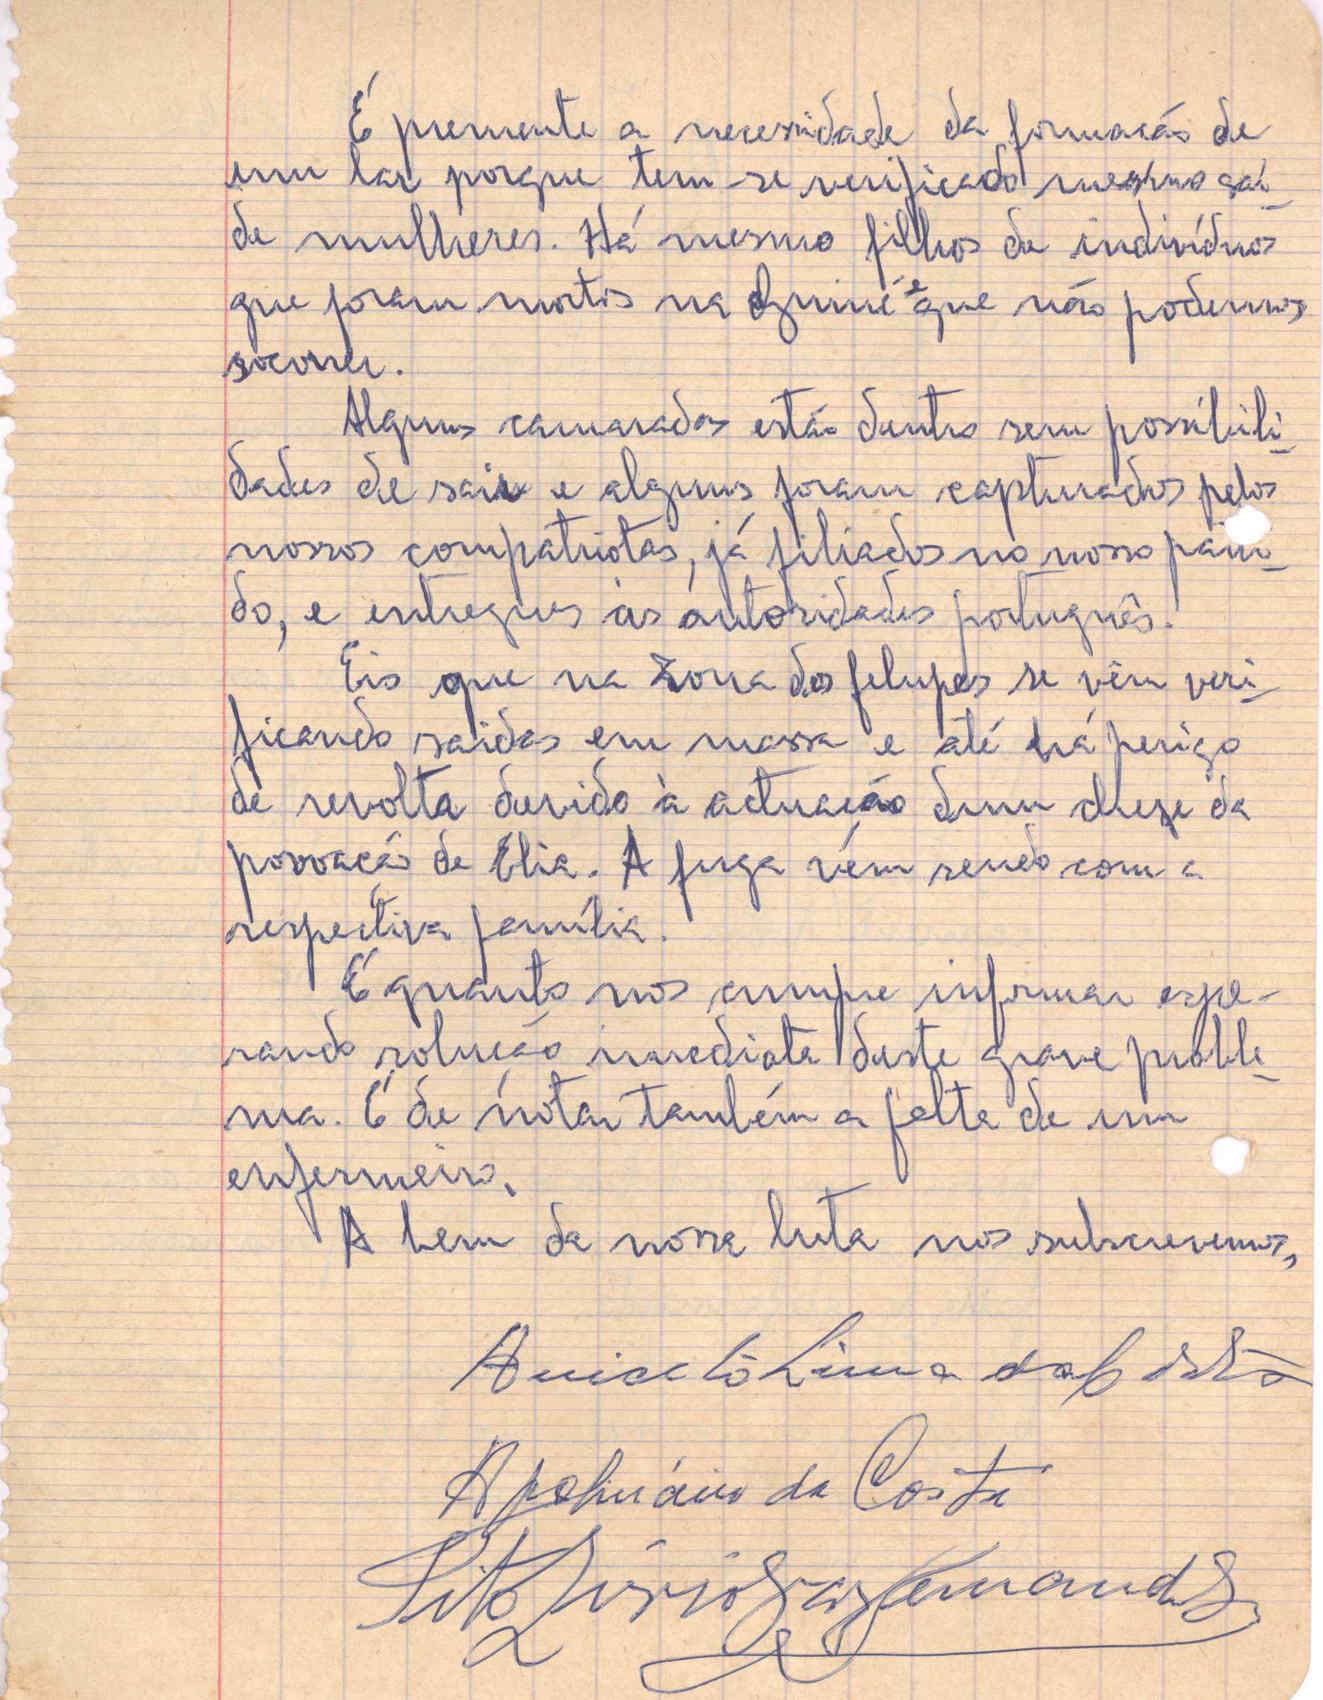 É premente a necessidade da formação de
um lar porque tem-se verificado mesmo saí-
de mulheres. Há mesmo filhos de indivíduos
que foram mortos na Guiné e que não podemos
socorrer.
Alguns camaradas estão dentro sem possibili-
dades de sair e alguns foram capturados pelos
nossos compatriotas, já filiados no nosso parti-
do, e entregues às autoridades português.
Eis que na zona dos felupes se vêm veri-
ficando saídas em massa e até há perigo
de revolta devido à actuação dum chefe da
povoação de Elia. A fuga vém sendo com a
respectiva família.
É quanto nos cumpre informar espe-
rando solução imediata deste grave proble-
ma. É de notar também a falta de um
enfermeiro.
A bem da nossa luta nos subscrevemos,
Aniceto Lima da Costa
Apolinário da Costa
Tito Lívio Fernandes